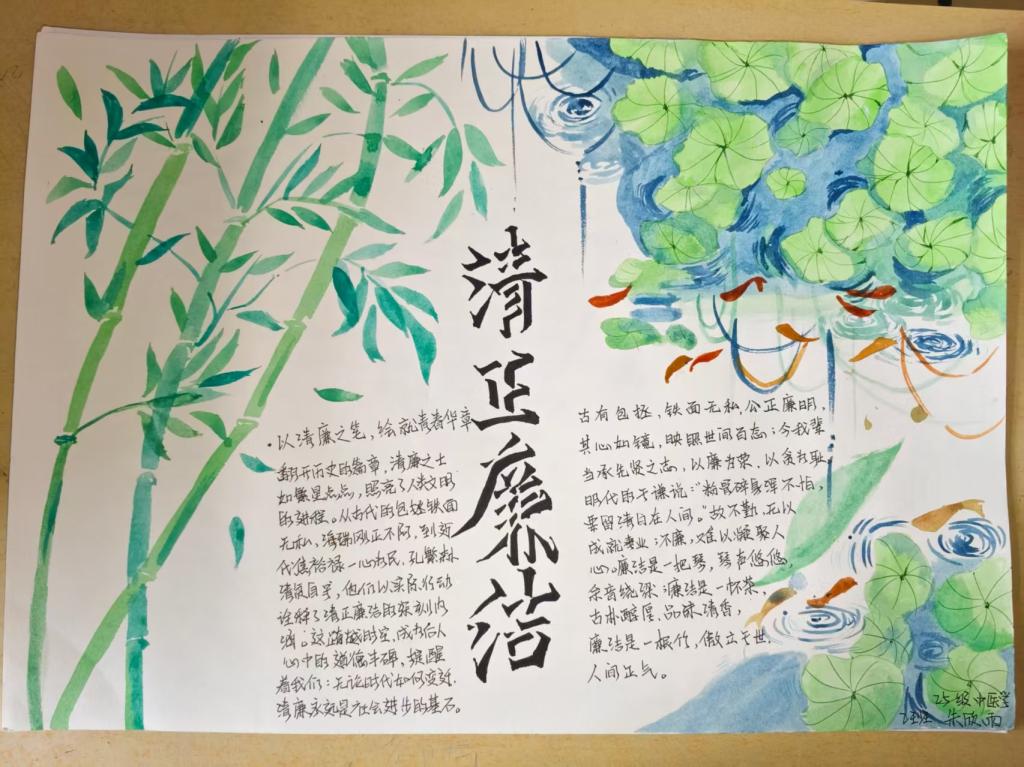 清正廉洁
·以清廉之笔，绘就青春华章
翻开历史的篇章，清廉之士
如繁星点点，照亮了人类文明
的进程。从古代的包拯铁面
无私，海瑞刚正不阿，到近
代焦裕禄一心为民，孔繁森
清贫自守，他们以实际行动
诠释了清正廉洁的深刻内
涵。这跨越时空，成为后人
心中的道德丰碑，提醒
着我们：无论时代如何变迁，
清廉永远是社会进步的基石。
古有包拯，铁面无私公正廉明，
其心如镜，映照世间百态；今我辈
当承先贤之志，以廉为荣，以贪为耻
明代的于谦说："粉骨碎身浑不怕，
要留清白在人间。"故不勤，无以
成就事业；不廉，难以凝聚人
心。廉洁是一把琴，琴声悠悠，
余音绕梁；廉洁是一杯茶，
古朴醇厚，品味清香，
廉洁是一根竹，傲立于世，
人间正气。
25级中医学
2班 朱欣雨